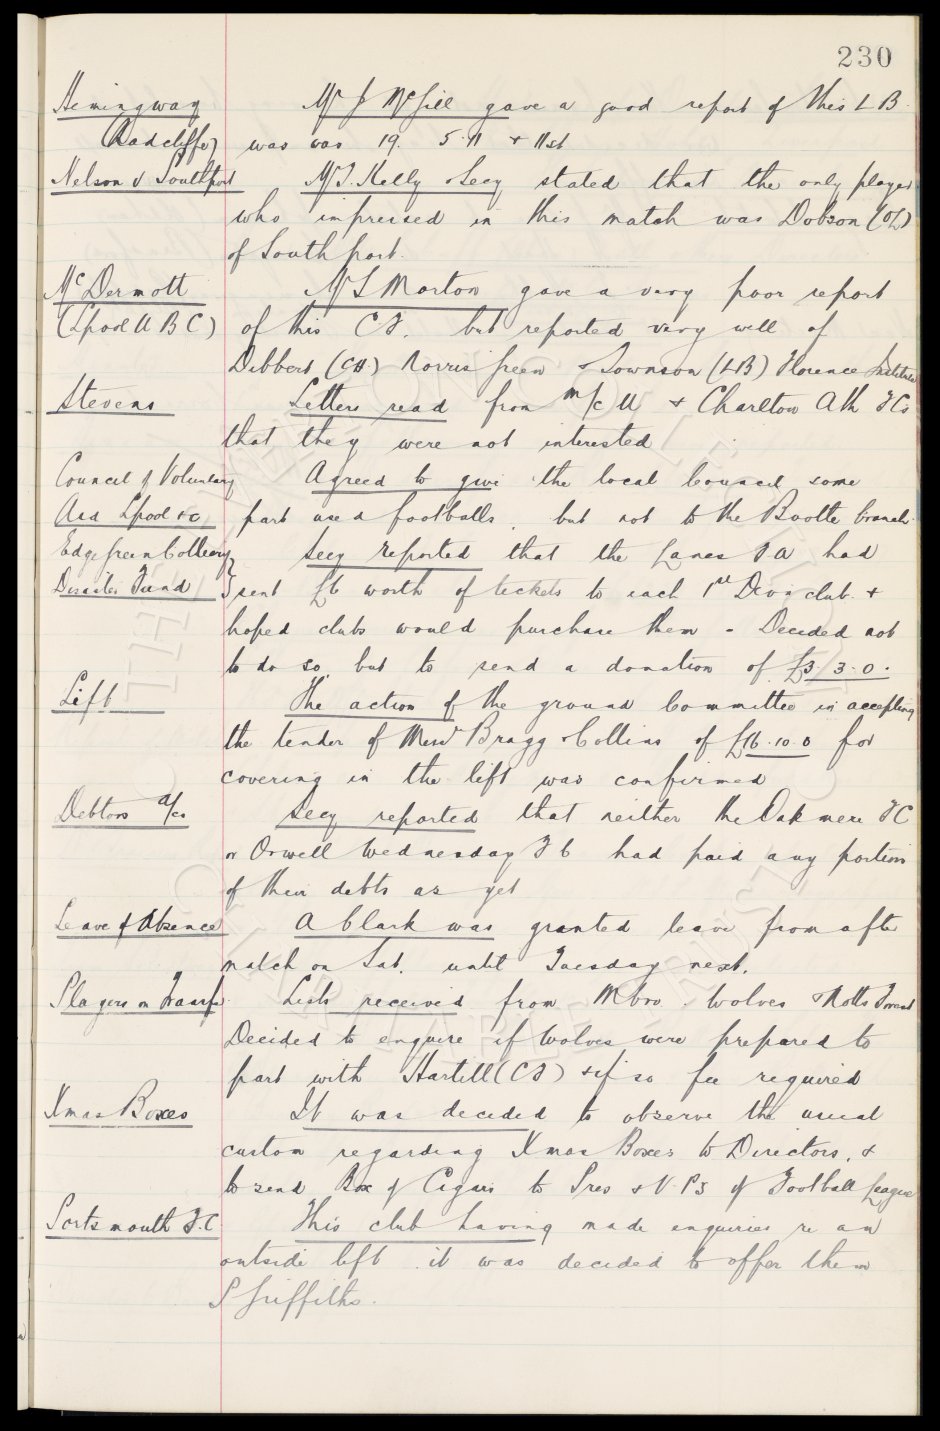 230
Hemingway Mr J McGill gave a good report of this L B.
(Radcliffe) was was 19. 5.11 & 11st
Nelson v Southport Mr T. Kelly & Secy stated that the only player
who impressed in this match was Dobson (OL)
of Southport.
McDermott Mr S Morton gave a very poor report
(Lpool U B C) of this C F. but reported very well of
Dibbert (CH) Norris Green & Lownson (LB) Florence Institute
Stevens Letters read from M/c U & Charlton Ath FCs
that they were not interested
Council of Voluntary Agreed to give the local Council some
Aid Lpool &c part used footballs, but not to the Bootle branch.
Edge Green Colliery Secy reported that the Lancs F A had
Disaster Fund sent £6 worth of tickets to each 1st Divn club. &
hoped clubs would purchase them - Decided not
to do so, but to send a donation of £3. 3. 0.
Lift The action of the ground Committee in accepting
the tender of Messrs Bragg & Collins of £16. 10. 0 for
covering in the lift was confirmed
Debtors a/cs Secy reported that neither the Oakmere FC
or Orwell Wednesday F C had paid any portion
of their debts as yet
Leave of Absence A Clark was granted leave from after
match on Sat. until Tuesday next.
Players on Transfer Lists received from Mbro. Wolves & Notts Forest
Decided to enquire if Wolves were prepared to
part with Hartill (C F) & if so fee required
Xmas Boxes It was decided to observe the usual
custom regarding Xmas Boxes to Directors, &
to send Box of Cigars to Pres & V.P's of Football League
Portsmouth F.C. This club having made enquiries re an
outside left it was decided to offer them
P Griffiths.